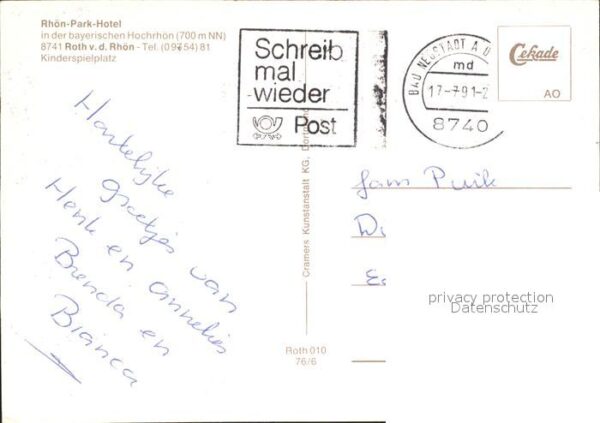 Rhön-Park-Hotel
in der bayerischen Hochrhön (700 m NN)
8741 Roth v. d. Rhön - Tel. (09754) 81
Kinderspielplatz
Schreib
mal
wieder
Post
BAD NEUSTADT A D
md
17-7.91-2
8740
Cekade
AO
Hartelijke
groetjes van
Henk en annelies
Brenda en
Bianca
Cramers Kunstanstalt KG, Dortmund
Roth 010
76/6
Fam
privacy protection
Datenschutz